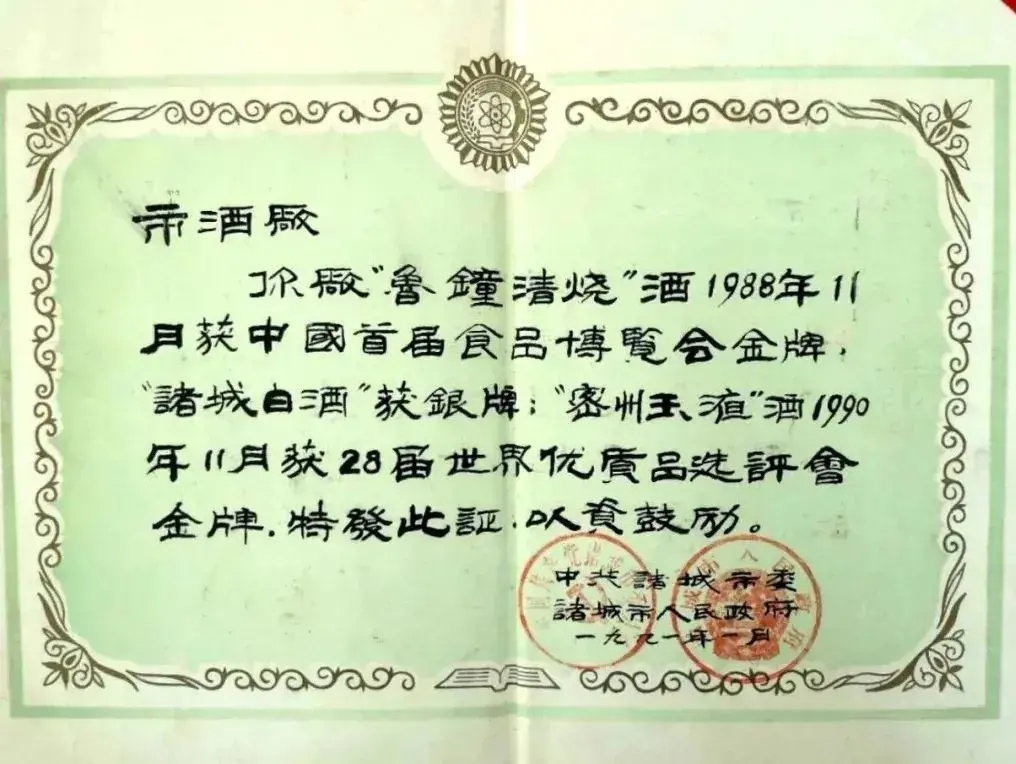 市酒厰
你厰“魯鐘清烧”酒1988年11
月获中國首届食品博覧会金牌,
“諸城白酒”获銀牌;“密州玉液”酒1990
年11月获28届世界优质品选評會
金牌.特發此証.以資鼓励。
中共諸城市委
諸城市人民政府
一九九一年一月